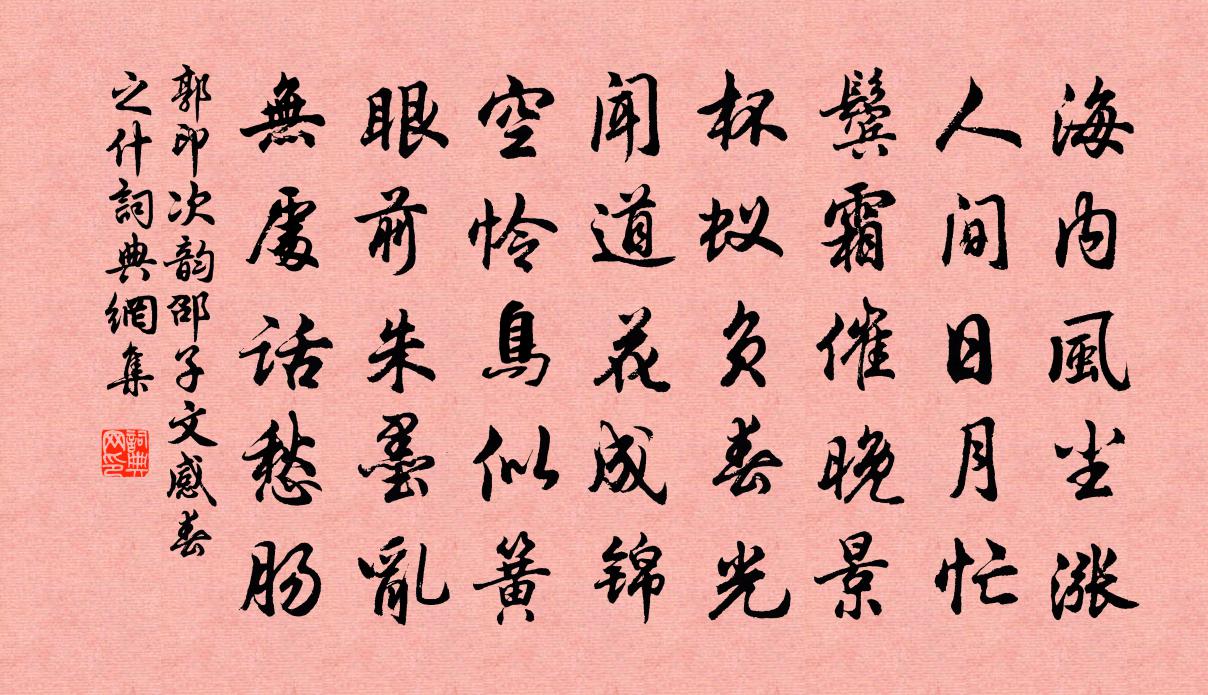 海内風尘漲
人间日月忙
鬓霜催晚景
杯蚁负春光
闻道花成锦
空怜鳥似簧
眼前朱墨亂
無處话愁肠
郭印次韵邵子文感春
之什詞典網集
詞典网印